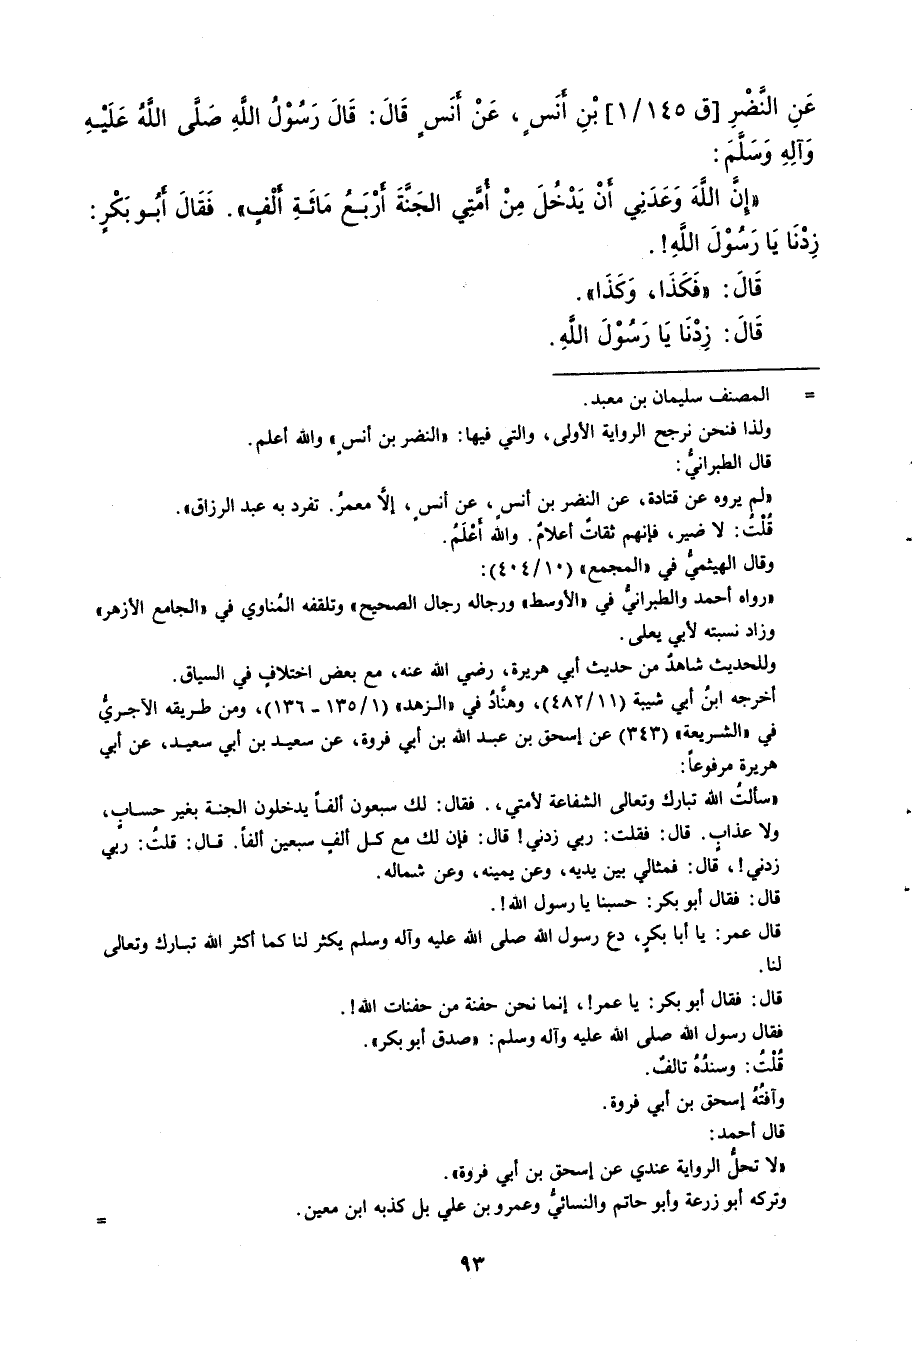 عَنِ النَّضْرِ [ق ١/١٤٥] بْنِ أَنَسٍ، عَنْ أَنَسٍ قَالَ: قَالَ رَسُوْلُ اللَّهِ صَلَّى اللَّهُ عَلَيْهِ
وَآلِهِ وَسَلَّمَ:
«إِنَّ اللَّهَ وَعَدَنِي أَنْ يَدْخُلَ مِنْ أُمَّتِي الجَنَّةَ أَرْبَعُ مَائَةِ أَلْفٍ». فَقَالَ أَبُو بَكْرٍ:
زِدْنَا يَا رَسُوْلَ اللَّهِ!.
قَالَ: «فَكَذَا، وَكَذَا».
قَالَ: زِدْنَا يَا رَسُوْلَ اللَّهِ.
= المصنف سليمان بن معبد.
ولذا فنحن نرجح الرواية الأولى، والتي فيها: «النضر بن أنسٍ» والله أعلم.
قال الطبرانيُّ:
«لم يروه عن قتادة، عن النضر بن أنسٍ، عن أنسٍ، إلَّا معمرٌ. تفرد به عبد الرزاق».
قُلْتُ: لا ضير، فإنهم ثقاتٌ أعلامٌ. والله أَعْلَمُ.
وقال الهيثميُّ في «المجمع» (٤٠٤/١٠):
«رواه أحمد والطبرانيُّ في «الأوسط» ورجاله رجال الصحيح» وتلقفه المُناوي في «الجامع الأزهر»
وزاد نسبته لأبي يعلى.
وللحديث شاهدٌ من حديث أبي هريرة، رضي الله عنه، مع بعض اختلافٍ في السياق.
أخرجه ابنُ أبي شيبة (٤٨٢/١١)، وهنَّادٌ في «الزهد» (١٣٥/١ - ١٣٦)، ومن طريقه الآجريُّ
في «الشريعة» (٣٤٣) عن إسحق بن عبد الله بن أبي فروة، عن سعيد بن أبي سعيد، عن أبي
هريرة مرفوعاً:
«سألتُ الله تبارك وتعالى الشفاعة لأمتي،. فقال: لك سبعون ألفاً يدخلون الجنة بغير حسابٍ،
ولا عذابٍ. قال: فقلت: ربي زدني! قال: فإن لك مع كل ألفٍ سبعين ألفاً. قال: قلتُ: ربي
زدني!، قال: فمثالي بين يديه، وعن يمينه، وعن شماله.
قال: فقال أبو بكر: حسبنا يا رسول الله!.
قال عمر: يا أبا بكرٍ، دع رسول الله صلى الله عليه وآله وسلم يكثر لنا كما أكثر الله تبارك وتعالى
لنا.
قال: فقال أبو بكر: يا عمر!، إنما نحن حفنة من حفنات الله!.
فقال رسول الله صلى الله عليه وآله وسلم: «صدق أبو بكر».
قُلْتُ: وسندُهُ تالفٌ.
وآفتُهُ إسحق بن أبي فروة.
قال أحمد:
«لا تحلُّ الرواية عندي عن إسحق بن أبي فروة».
وتركه أبو زرعة وأبو حاتم والنسائيُّ وعمرو بن علي بل كذبه ابن معين. =
٩٣